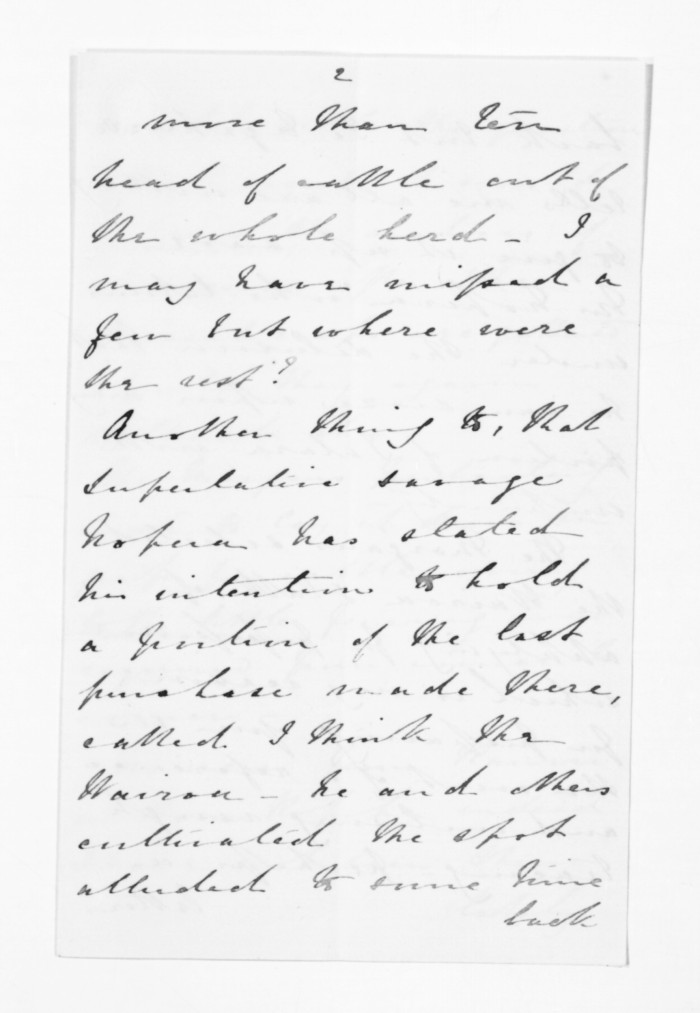 2
more than ten
head of cattle out of
the whole herd - I
may have missed a
few but where were
the rest?
Another thing to, that
superlative savage
Nopera has stated
his intention to hold
a portion of the last
purchase made there,
called I think the
Wairoa - he and others
cultivated the spot
alluded to some time
back